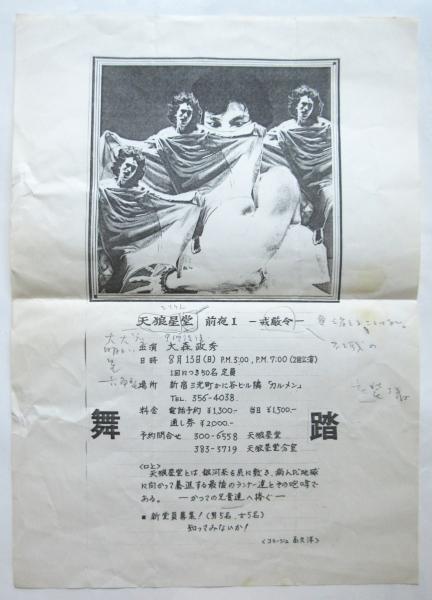 天狼星堂 前夜Ⅰ －戒厳令－
出演 大森政秀
日時 8月13日(日) P.M.3:00, P.M.7:00 (2回公演)
1回につき50名 定員
場所 新宿三光町かに谷ビル隣 "カルメン"
TEL. 356-4038.
料金 電話予約 ¥1,300- 当日 ¥1,500-
通し券 ¥2,000-
予約問合せ 300-6558 天狼星堂
383-3719 天狼星堂分室
舞 踏
<口上>
天狼星堂とは、銀河系を尻に敷き、病んだ地球
に向かって暴走する最後のランナー達とその咆哮で
ある。 －かつての兄貴達へ捧ぐ－
■ 新党員募集! (男5名、女5名)
知ってみないか!